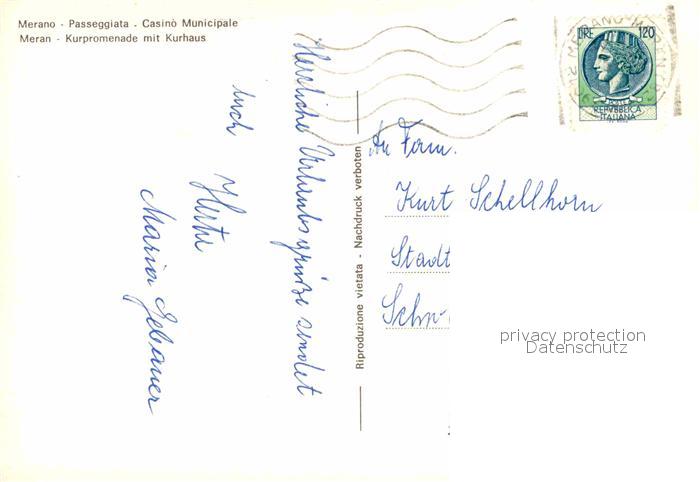 Merano - Passeggiata - Casinò Municipale
Meran - Kurpromenade mit Kurhaus
Herzliche Urlaubsgrüße sendet
Euch
Herta
Maria Gebauer
Riproduzione vietata - Nachdruck verboten
An Fam.
Kurt Schellhorn
Stadt
Schw
LIRE 120
REPVBBLICA
ITALIANA
MERANO MERAN
privacy protection
Datenschutz